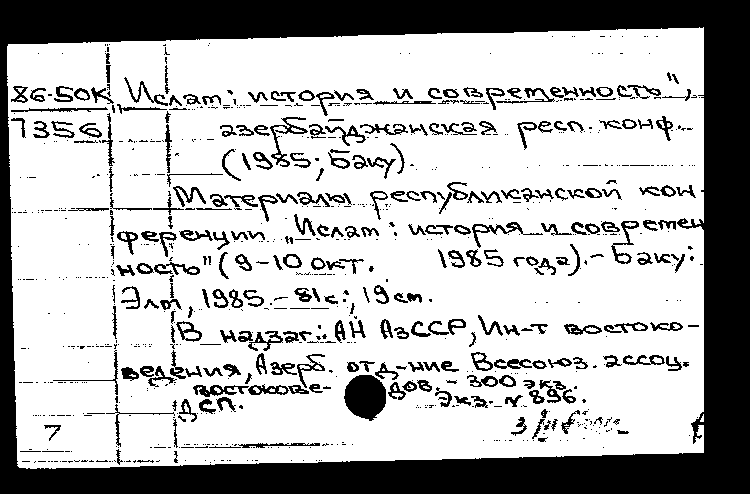 86-50К „Ислам: история и современность",
7356 азербайджанская респ. конф.
(1985; Баку).
Материалы республиканской кон-
ференции „Ислам: история и современ
ность" (9-10 окт. 1985 года).- Баку:
Элм, 1985.- 81с.; 19см.
В надзаг.: АН АзССР, Ин-т востоко-
ведения, Азерб. отд-ние Всесоюз. ассоц.
востокове- дов. - 300 экз.
ДСП. Экз. № 896.
7 3